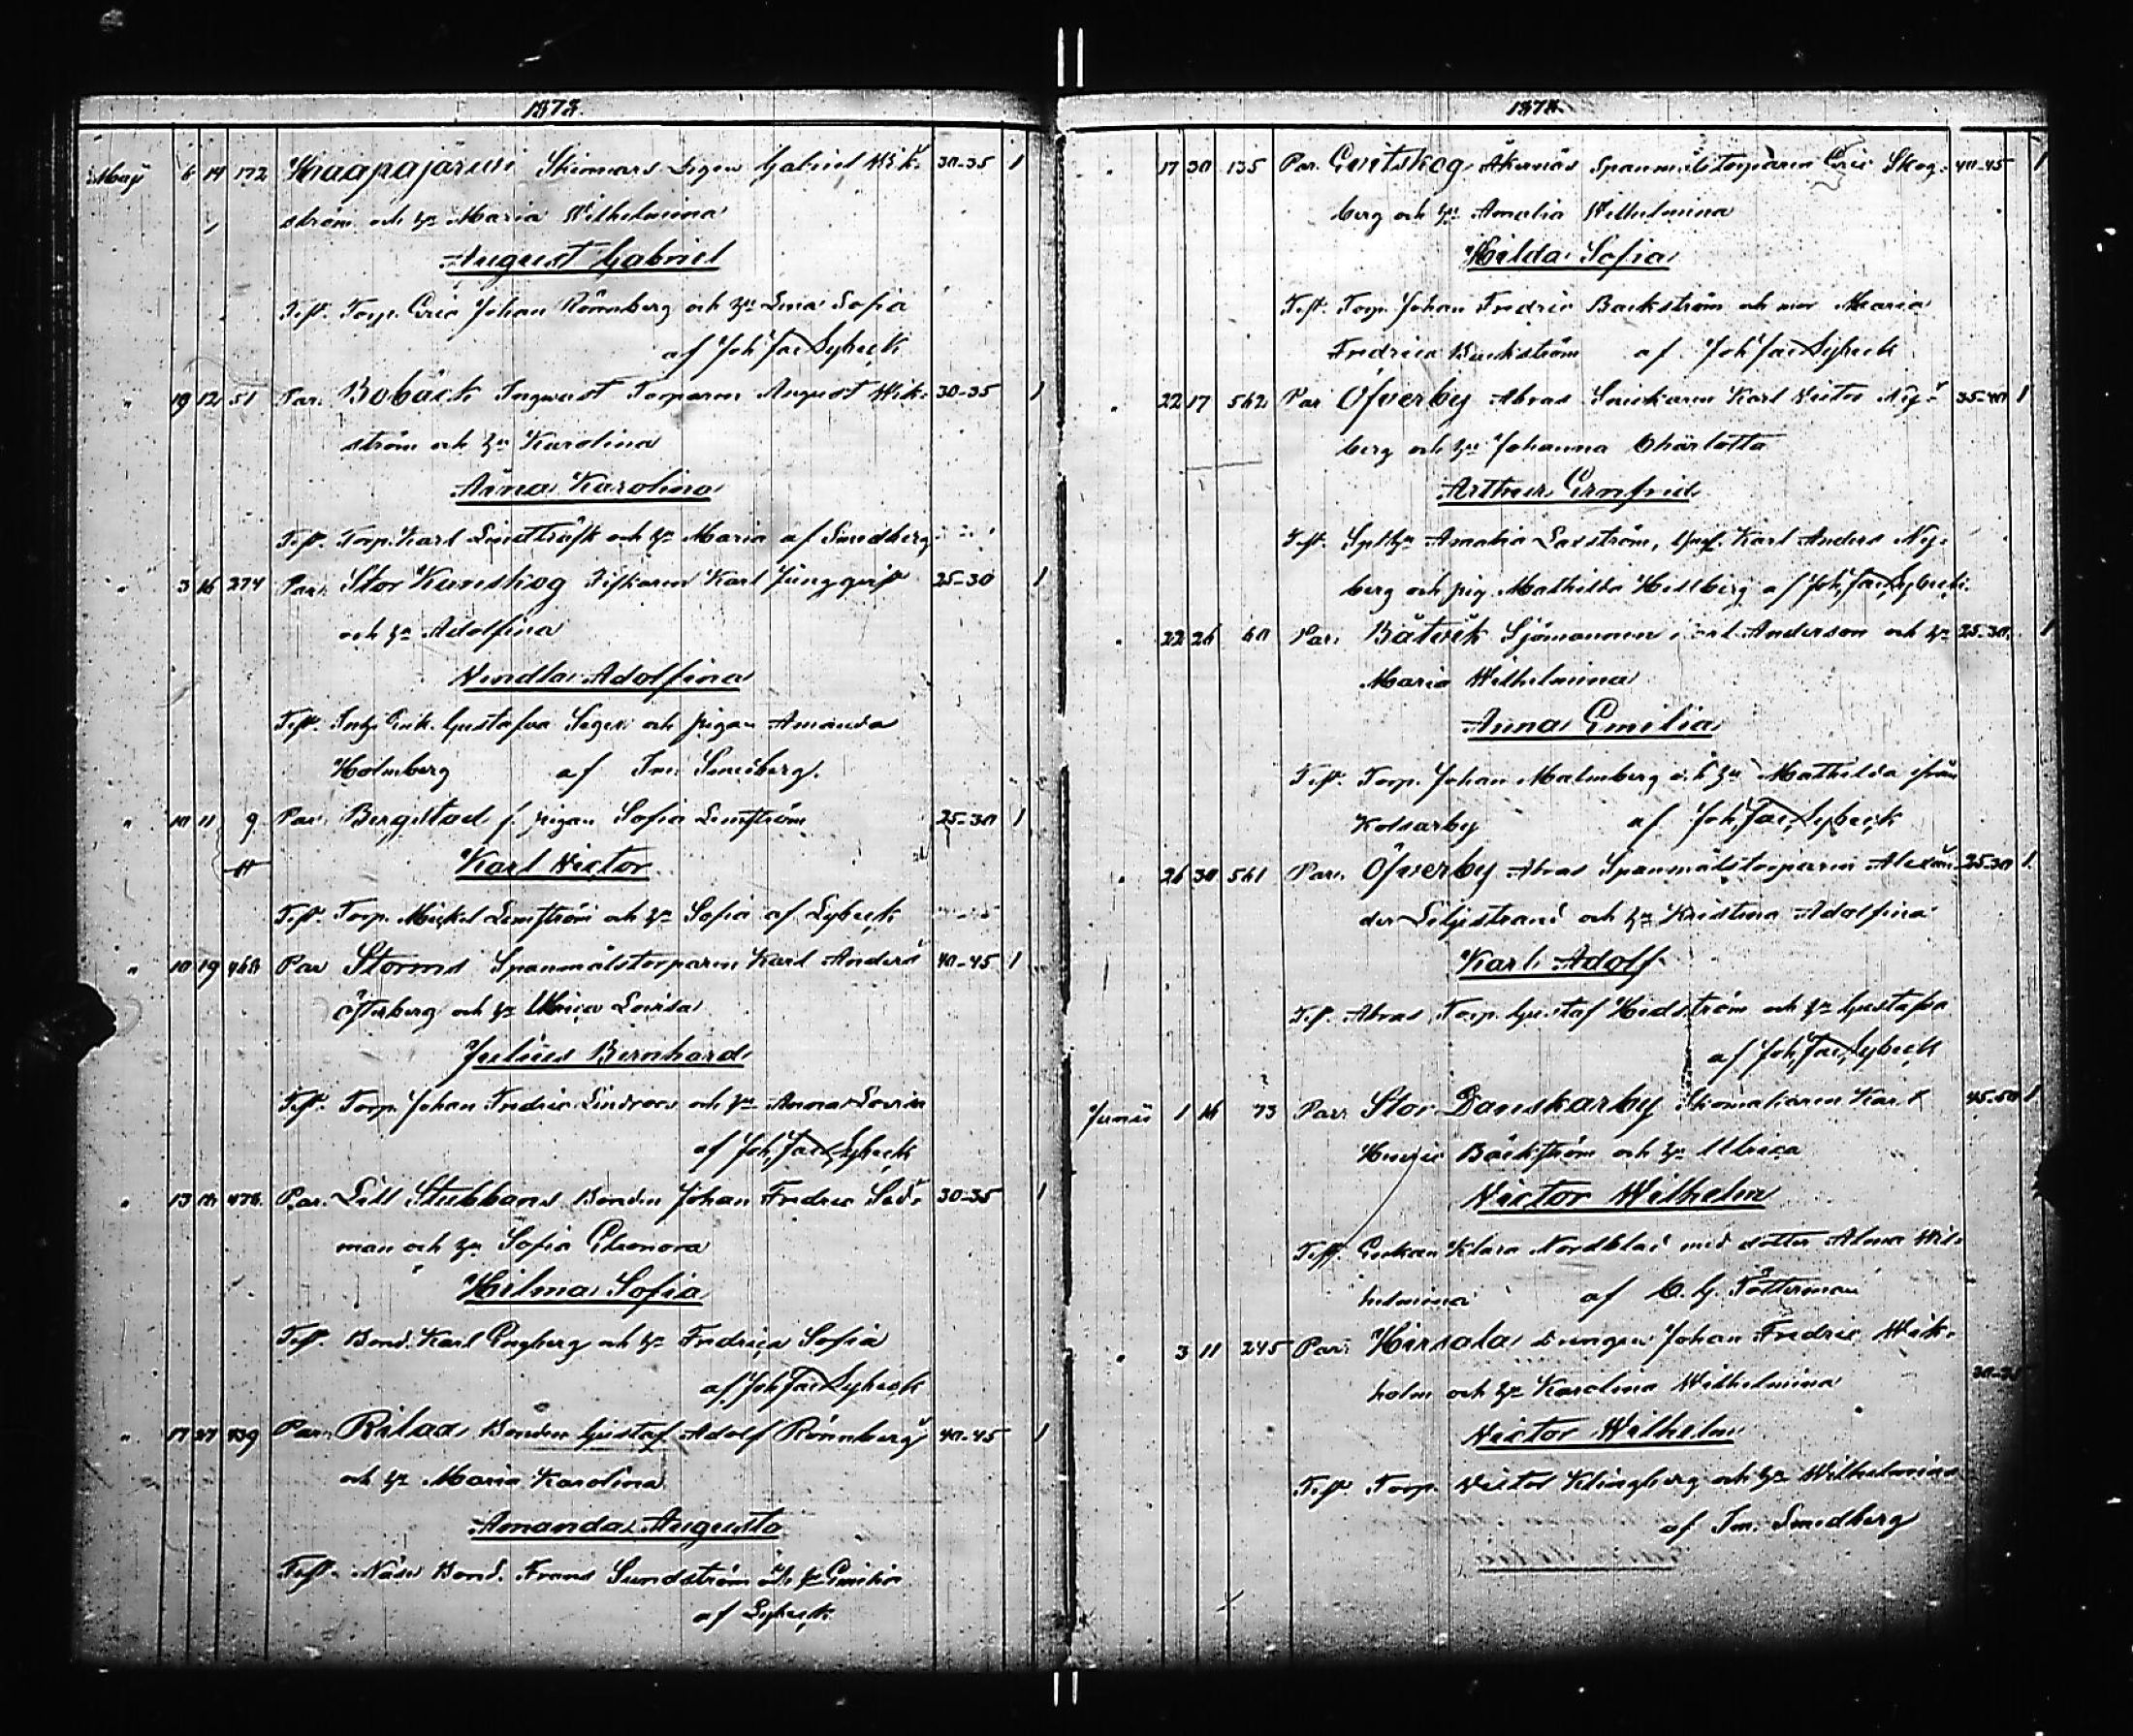 1878.
Maji 6 14 172 Knapajärwi Skinnars Legen Gabriel Wik- 30-35 1
ström och h:u Maria Wilhelmina
August Gabriel
Test. Torp. Eric Johan Rönnberg och h:u Lina Sofia
af Joh Jac Lybeck
" 19 12 51 Par. Bobäck Ingwast Torparen August Wik- 30-35 1
ström och h:u Karolina
Aina Karolina
Test. Torp. Karl Lindtråsk och h:u Maria af Smedberg
" 3 16 274 Par. Stor Kanskog Fiskaren Karl Jungqvist 25-30 1
och h:u Adolfina
Vendla Adolfina
Test. Gustafva och pigan Amanda
Holmberg af Im. Smedberg.
" 10 11 9 Par. Bergstad f. pigan Sofia Lemström 25-30 1
Karl Victor
Test. Torp. Mickel Lemström och h:u Sofia af Lybeck
" 10 19 468 Par. Storms Spanmålstorparen Karl Anders 40-45 1
Österberg och h:u Ulrica Lovisa
Julius Bernhard
Test. Torp. Johan Fredric Lindroos och h:u Anna Lovisa
af Joh Jac Lybeck
" 13 478 Par. Lill Stubbans Bonden Johan Fredric Söd- 30-35 1
man och h:u Sofia Eleonora
Hilma Sofia
Test. Bond. Karl Engberg och h:u Fredrica Sofia
af Joh Jac Lybeck
" 17 27 439 Par. Rilax Bonden Gustaf Adolf Rönnberg 40-45 1
och h:u Maria Karolina
Amanda Augusta
Test. Näse Bond. Frans Sundström och h:u Emilia
af Lybeck
1878.
" 17 30 135 Par. Evitskog Åkernäs Spanmålstorparen Eric Skog- 40-45 1
berg och h:u Amalia Wilhelmina
Hilda Sofia
Test. Torp. Johan Fredric Backström och mor Maria
Fredrica Backström af Joh Jac Lybeck
" 22 17 562 Par. Öfverby Abras Snickaren Karl Victor Ny- 35-40 1
berg och h:u Johanna Charlotta
Arthur Ernfrid
Test. Amalia Laxström, Karl Anders Ny-
berg och pig. Mathilda Hellberg af Joh. Jac. Lybeck.
" 22 26 60 Par. Båtvik Sjömannen Karl Anderson och h:u 25-30 1
Maria Wilhelmina
Anna Emilia
Test. Torp. Johan Malmberg och h:u Mathilda ifrån
Kolsarby af Joh. Jac. Lybeck
" 26 30 561 Par. Öfverby Abras Spanmålstorparen Alexan- 25-30 1
der Liljestrand och h:u Kristina Adolfina
Karl Adolf
Test. Abras Torp. Gustaf Hedström och h:u Gustafva
af Joh. Jac. Lybeck
Junii 1 16 73 Par. Stor Danskarby Skomakaren Karl 45-50 1
Henric Bäckström och h:u Ulrica
Victor Wilhelm
Test. Enkan Klara Nordblad med dotter Alma Wil-
helmina af C. G. Tötterman
" 3 11 245 Par. Hirsala Drengen Johan Fredric Wik-
holm och h:u Karolina Wilhelmina 30-35
Victor Wilhelm
Test. Torp. Victor Klingberg och h:u Wilhelmina
af Im. Smedberg